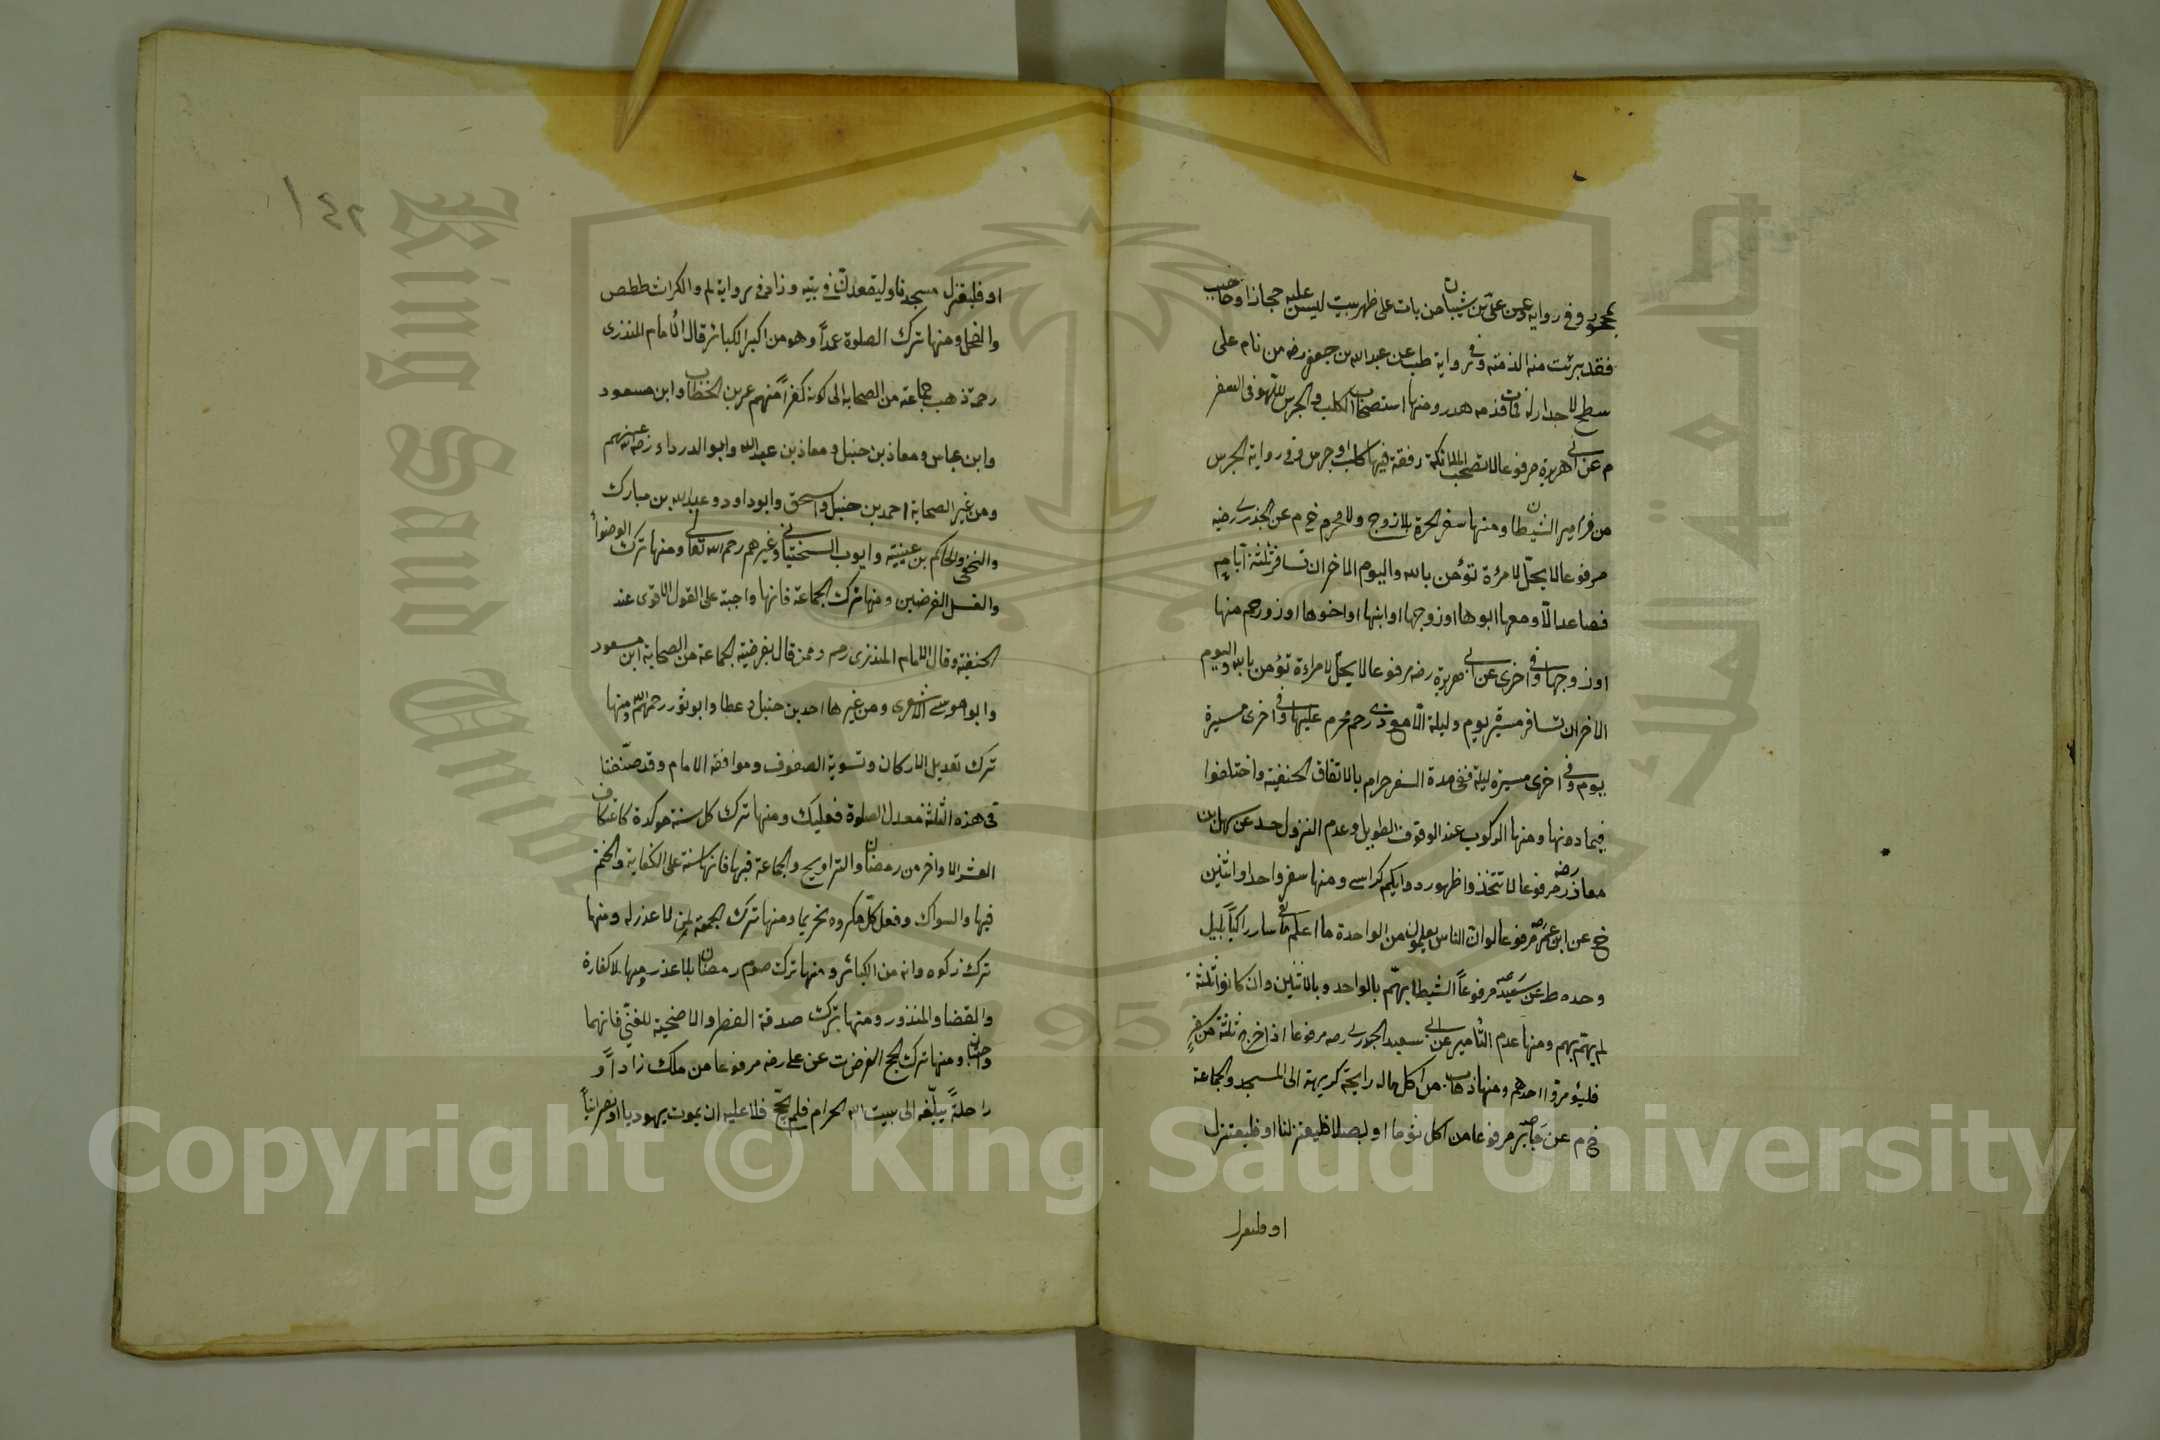 بمحجور وفي رواية عن علي بن شيبان من بات على ظهر بيت ليس عليه حجاز او حاجب
فقد برئت منه الذمته وفي رواية طب عن عبد الله بن جعفر رضه من نام على
سطح لا جدار له فمات فذمه هدر ومنها استصحاب الكلب والجرس للهو في السفر
م عن ابي هريرة مرفوعا لا تصحب الملائكة رفقة فيها كلب او جرس وفي رواية الجرس
من مزامير الشيطان ومنها سفر الحرة بلا زوج ولا محرم خ م عن الخدري رضه
مرفوعا لا يحل لامرءة تؤمن بالله واليوم الاخر ان تسافر ثلثة ايام
فصاعدا الا ومعها ابوها او زوجها او ابنها او اخوها او ذو رحم منها
او زوجها وفي اخرى عن ابي هريرة رضه مرفوعا لا يحل لامراءة تؤمن بالله واليوم
الاخر ان تسافر مسيرة يوم وليلة الا مع ذي رحم محرم عليها وفي اخرى مسيرة
يوم وفي اخرى مسيرة ليلة ففي مدة السفر حرام بالاتفاق الحنفية واختلفوا
فيما دونها ومنها الركوب عند الوقوف الطويل وعدم النزول حد عن سهل بن
معاذ رضه مرفوعا لا تتخذوا ظهور دوابكم كراسي ومنها سفر واحد او اثنين
خ عن ابن عمر رضه مرفوعا لو ان الناس يعلمون من الواحدة ما اعلم ما سار راكبا بليل
وحده ط عن سعيد مرفوعا الشيطان يهم بالواحد وبالاثنين وان كانوا ثلثة
لم يهتم بهم ومنها عدم التأمير عن ابي سعيد الخدري رضه مرفوعا اذا خرج ثلثة من سفر
فليؤمروا احدهم ومنها ذهاب من اكل ماله رايحة كريهة الى المسجد والجماعة
خ م عن جابر رضه مرفوعا من اكل ثوما او بصلا فليعتزلنا او فليعتزل
او فليعتزل
١٤٢
او فليعتزل مسجدنا وليقعدن في بيته وزاد في رواية لم والكراث ططص
والفجل ومنها ترك الصلوة عمداً وهو من اكبر الكبائر قال الامام المنذري
رحمة ذهب جماعة من الصحابة الى كونه كفراً منهم عمر بن الخطاب وابن مسعود
وابن عباس ومعاذ بن جنبل ومعاذ بن عبد الله وابو الدرداء رضى الله عنهم
ومن غير الصحابة احمد بن حنبل واسحق وابو داود وعبد الله بن مبارك
والنخعي والحاكم بن عيينة وايوب السختياني وغيرهم رحمه الله تعالى ومنها ترك الوضوأ
والغسل الفرضين ومنها ترك الجماعة فانها واجبة على القول الاقوى عند
الحنفية وقال الامام المنذري رحمه وممن قال بفرضية الجماعة من الصحابة ابن مسعود
وابو موسى الاشعري ومن غيرها احمد بن حنبل وعطا وابو ثور رحمهم الله ومنها
ترك تعديل الاركان وتسوية الصفوف وموافقه الامام وقد صنفنا
في هذه الثلثة معدل الصلوة فعليك ومنها ترك كل سنة موكدة كاعتكاف
العشر الاواخر من رمضان والتراويح والجماعة فيها فانها سنة على الكفاية والختم
فيها والسواك وفعل كل مكروه تحريما ومنها ترك الجمعة لمن لا عذر له ومنها
ترك زكوه وانه من الكبائر ومنها ترك صوم رمضان بلا عذر ومنها الكفارة
والقضا والمنذور ومنها ترك صدقة الفطر والاضحية للغني فانهما
واجبتان ومنها ترك الحج الفرض ت عن علي رضه مرفوعا من ملك زاداً و
راحلةً يبلغه الى بيت الله الحرام فلم يحج فلا عليه ان يموت يهوديا او نصرانياً
King Saud University
1957
Copyright © King Saud University